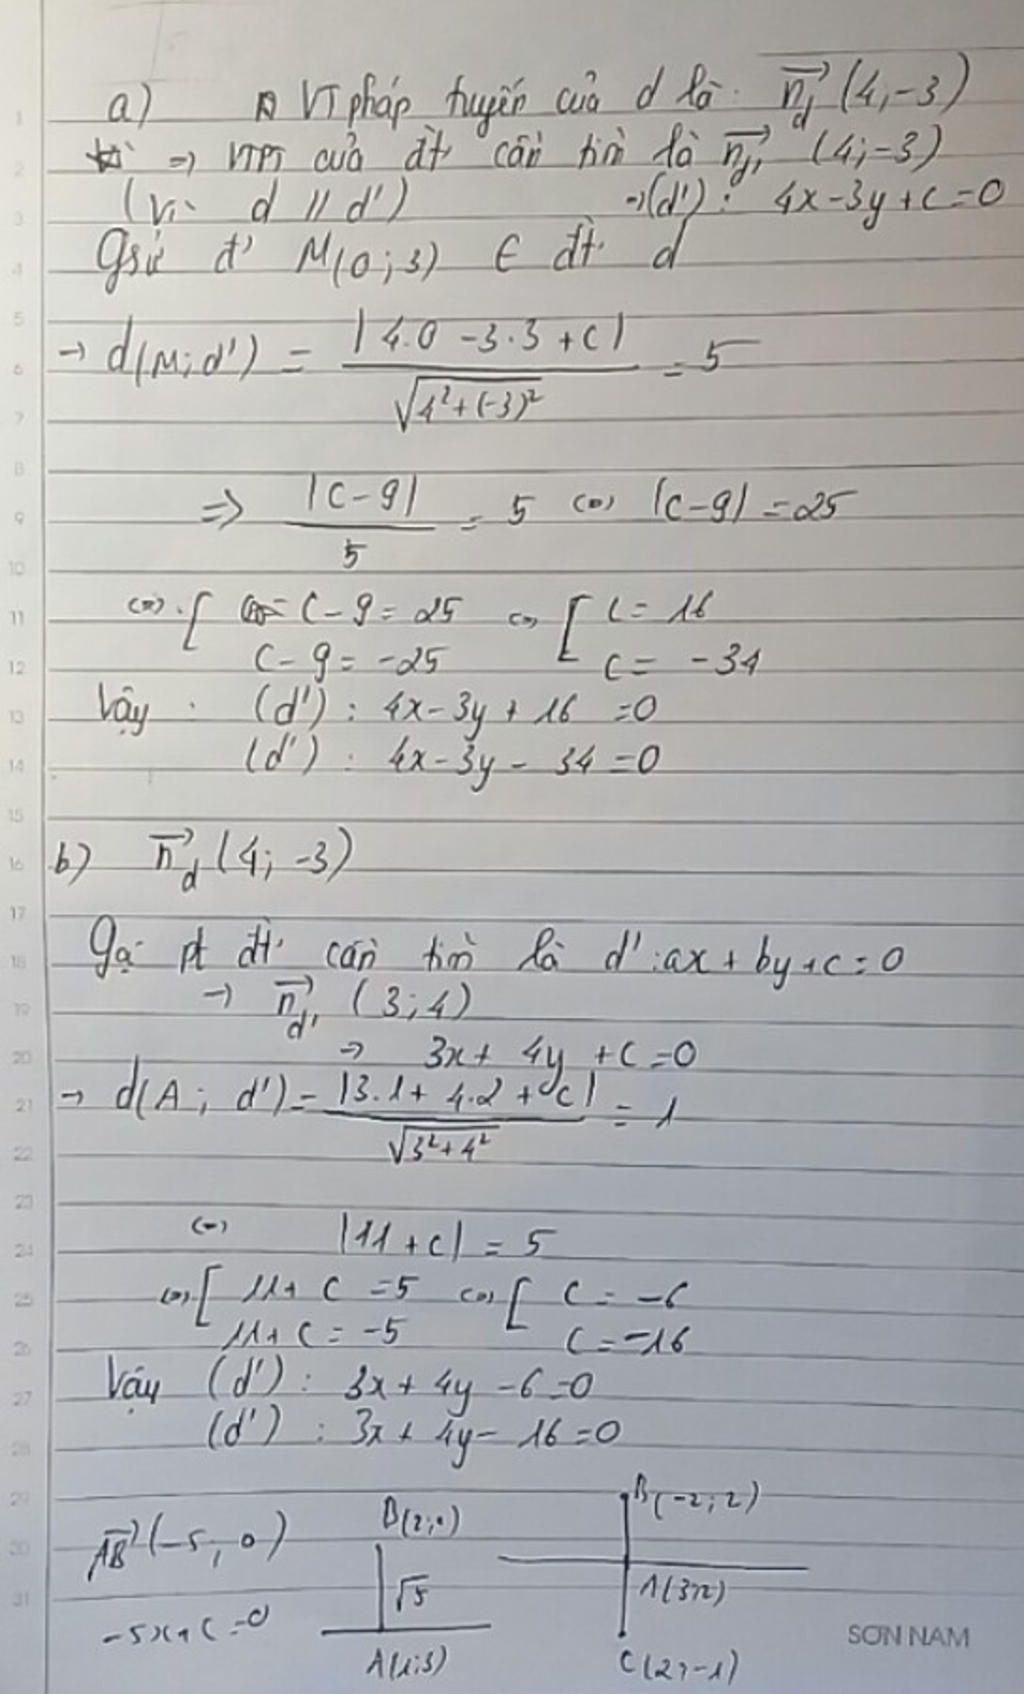 a) VT pháp tuyến của d là: n_d→ (4;-3)
=> VTPT của đt cần tìm là n_d'→ (4;-3)
(Vì d // d') →(d'): 4x-3y+c=0
Gsử đ' M(0;3) ∈ đt d
→ d(M;d') = |4.0 -3.3 +c| / √(4²+(-3)²) = 5
=> |c-9| / 5 = 5 <=> |c-9| = 25
<=> [ c-9 = 25 <=> [ c = 16
c-9 = -25 c = -34
Vậy: (d'): 4x-3y+16 =0
(d'): 4x-3y-34=0
b) n_d→ (4;-3)
Gọi pt đt cần tìm là d':ax+by+c=0
→ n_d'→ (3;4)
→ 3x+4y+c=0
→ d(A; d') = |3.1+4.2+c| / √(3²+4²) = 1
<=> |11+c| = 5
<=> [ 11+c =5 <=> [ c = -6
11+c = -5 c = -16
Vậy (d'): 3x+4y-6=0
(d'): 3x+4y-16=0
AB→ (-5; 0) B(-2;2)
√5 A(3;2)
-5x+c=0 A(1;3) C(2;-1)
SƠN NAM